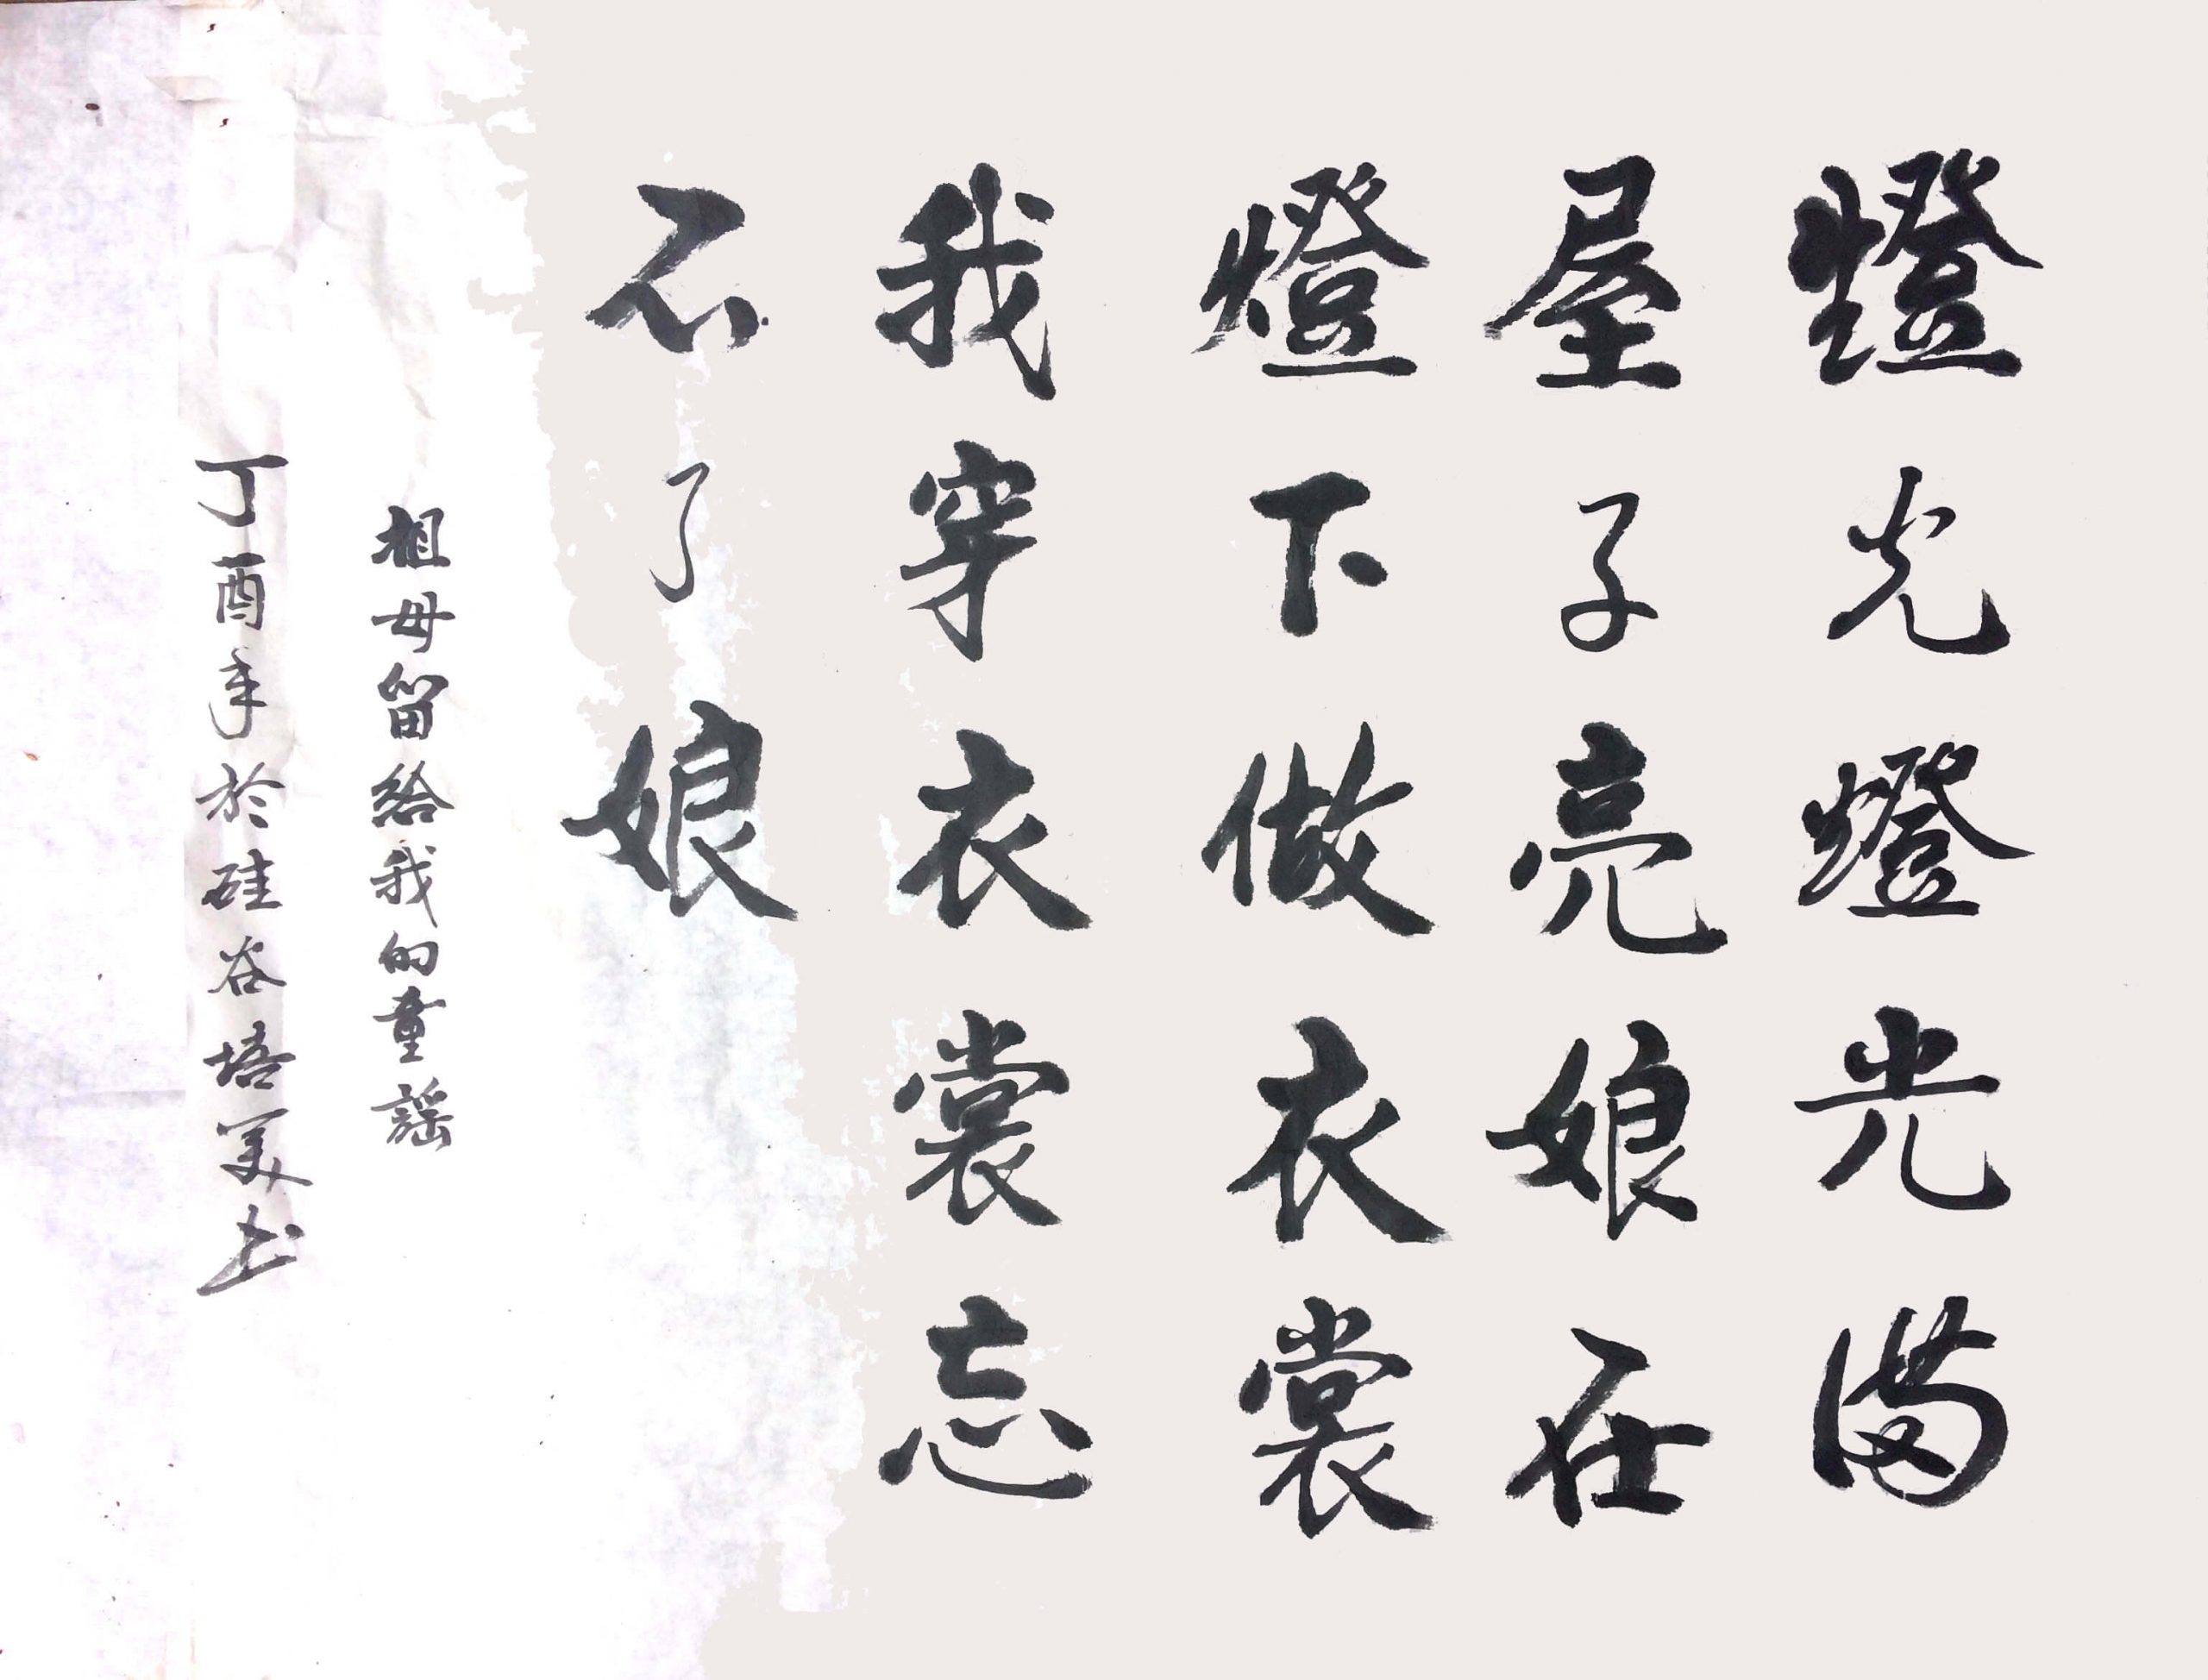 燈光燈光满
屋子亮娘在
燈下做衣裳
我穿衣裳忘
不了娘
祖母留給我的童謡
丁酉年於硅谷培美书